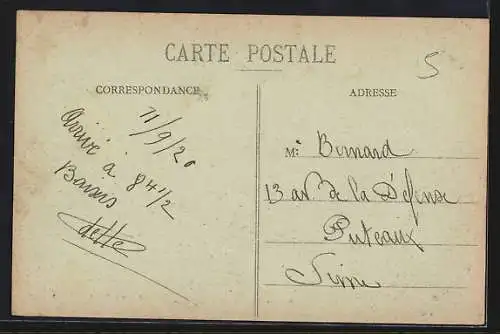 CARTE POSTALE
5
CORRESPONDANCE
ADRESSE
11/9/20
Arrivé à 8 h 1/2
Baisers
Mr Bernard
13 av de la Défense
Puteaux
Seine